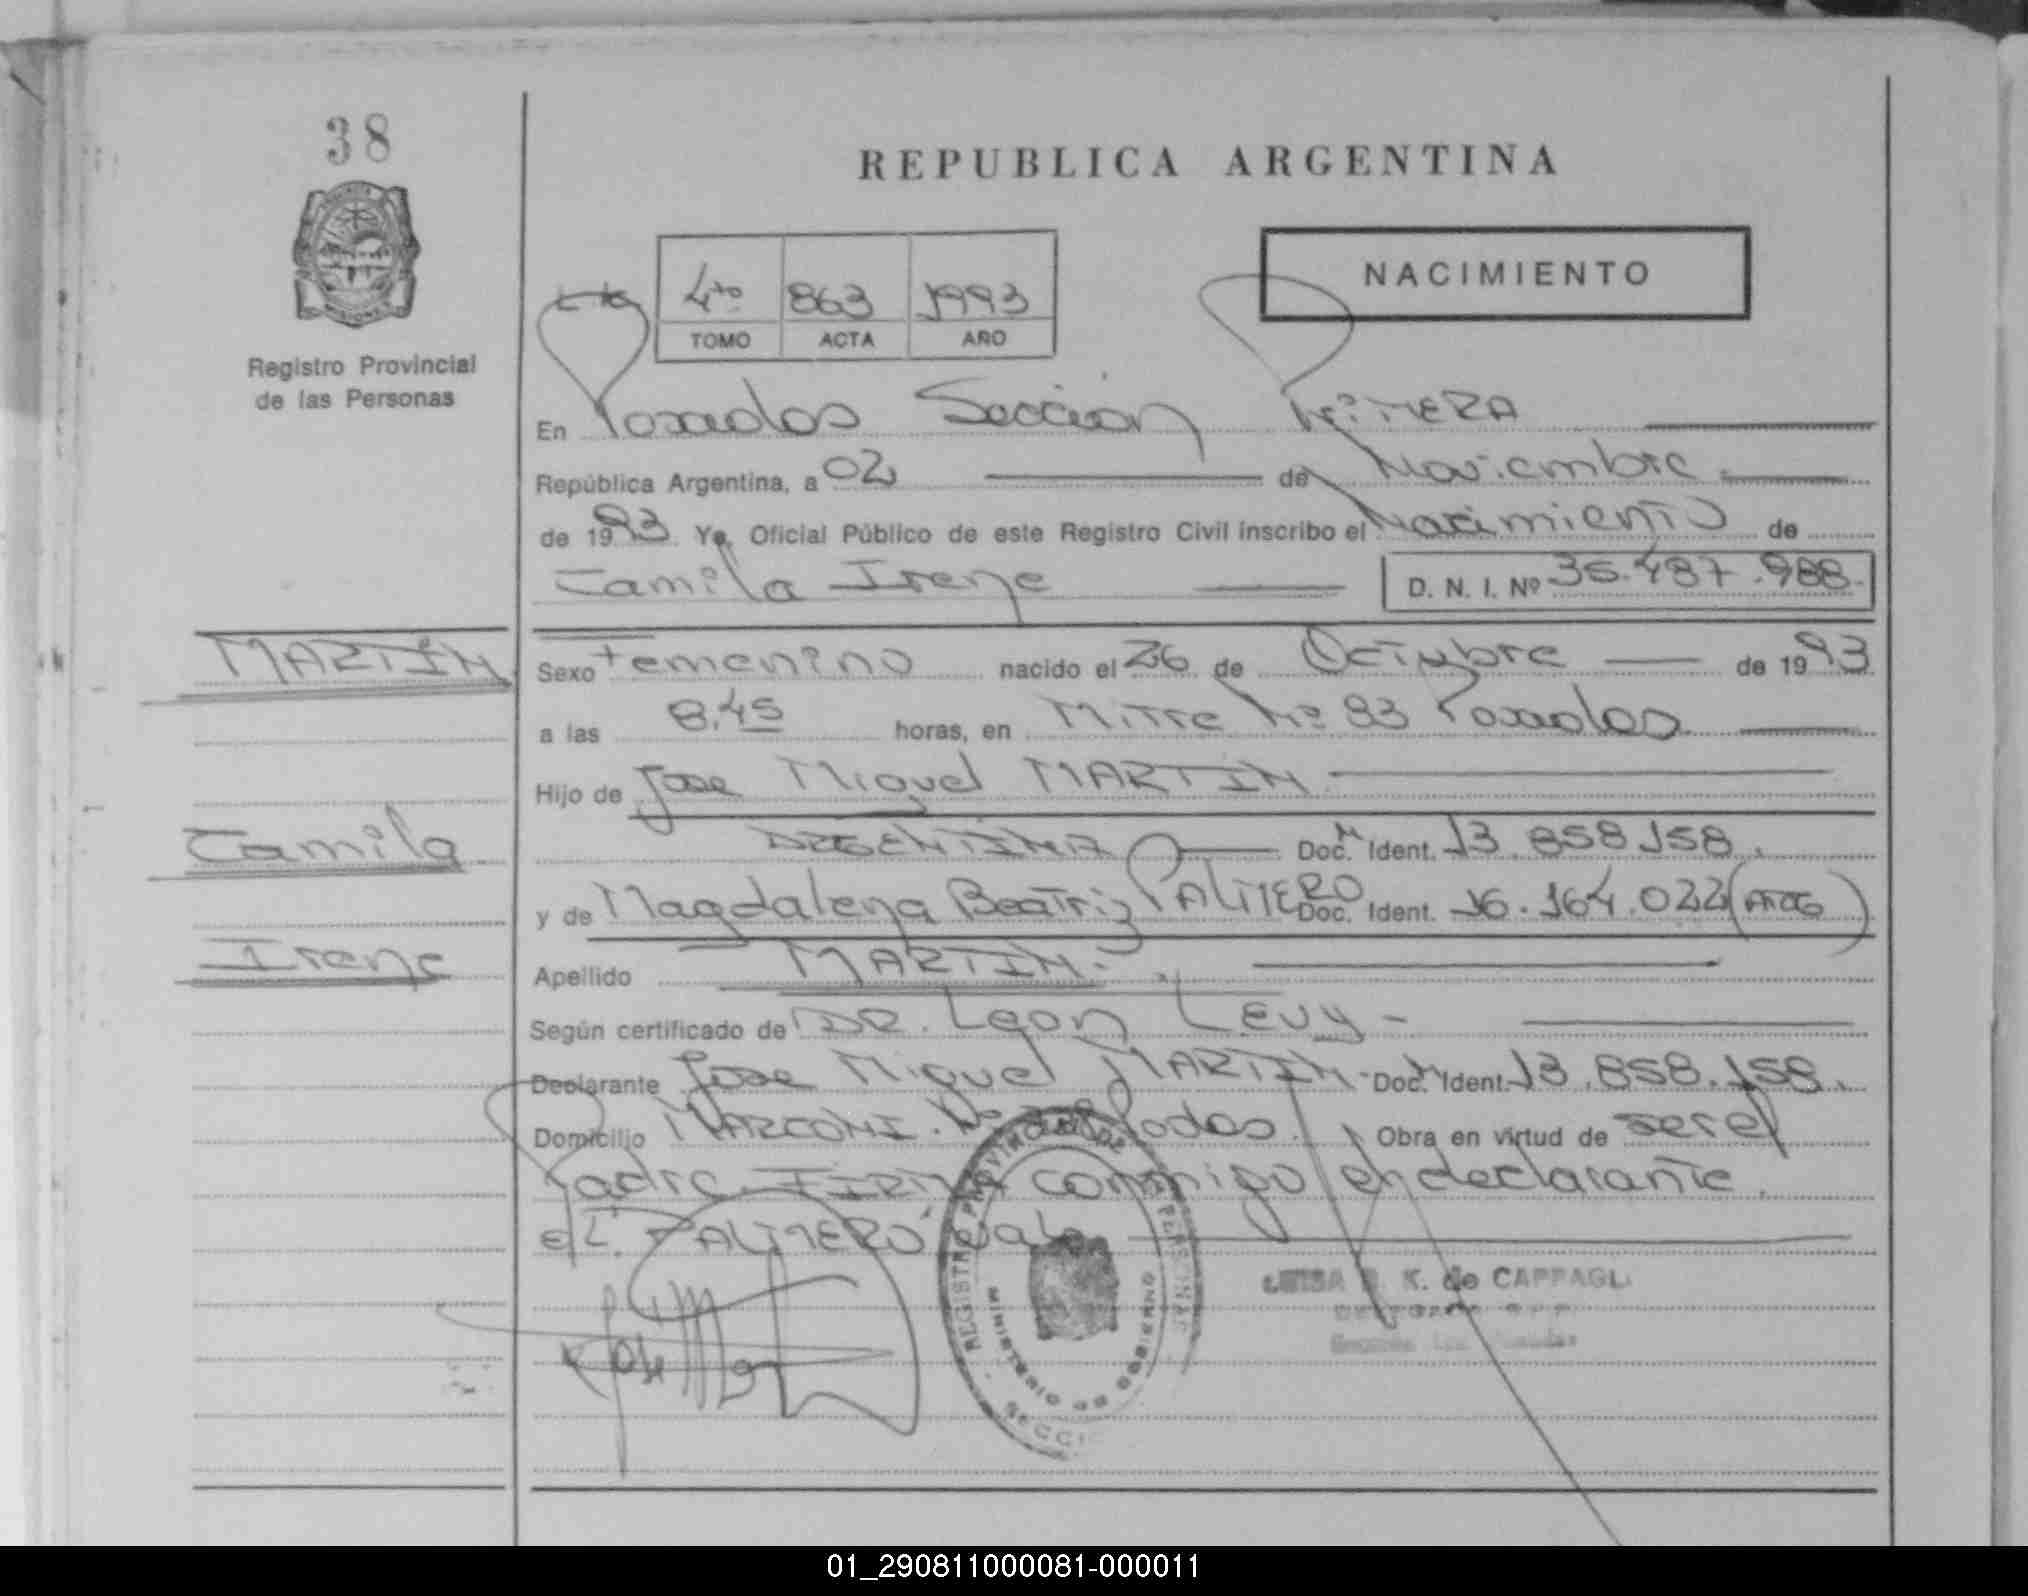 38
REPUBLICA ARGENTINA
NACIMIENTO
4to 863 1993
TOMO ACTA AÑO
Registro Provincial
de las Personas
En Posadas Sección Primera
República Argentina, a 02 de Noviembre
de 1993 Yo, Oficial Público de este Registro Civil inscribo el Nacimiento de
Camila Irene D. N. I. Nº 35.487.988.
MARTÍN
Sexo Femenino nacido el 26 de Octubre de 1993
a las 8,45 horas, en Mitre Nº 93 Posadas
Hijo de Jose Miguel MARTIN
Camila
ARGENTINA Doc. Ident. 13.858.158.
y de Magdalena Beatriz PALMERO Doc. Ident. 16.164.022 (ARG)
Irene
Apellido MARTIN.
Según certificado de DR. Leon Levy -
Declarante Jose Miguel MARTIN Doc. Ident. 13.858.158.
Domicilio MARCONI. Nº Posadas. Obra en virtud de ser el
Padre FIRMA conmigo el declarante.
E/L. "PALMERO" Vale
REGISTRO PROVINCIAL DE LAS PERSONAS
MINISTERIO DE GOBIERNO
SECCI
LUISA K. de CAPPAGLI
01_290811000081-000011